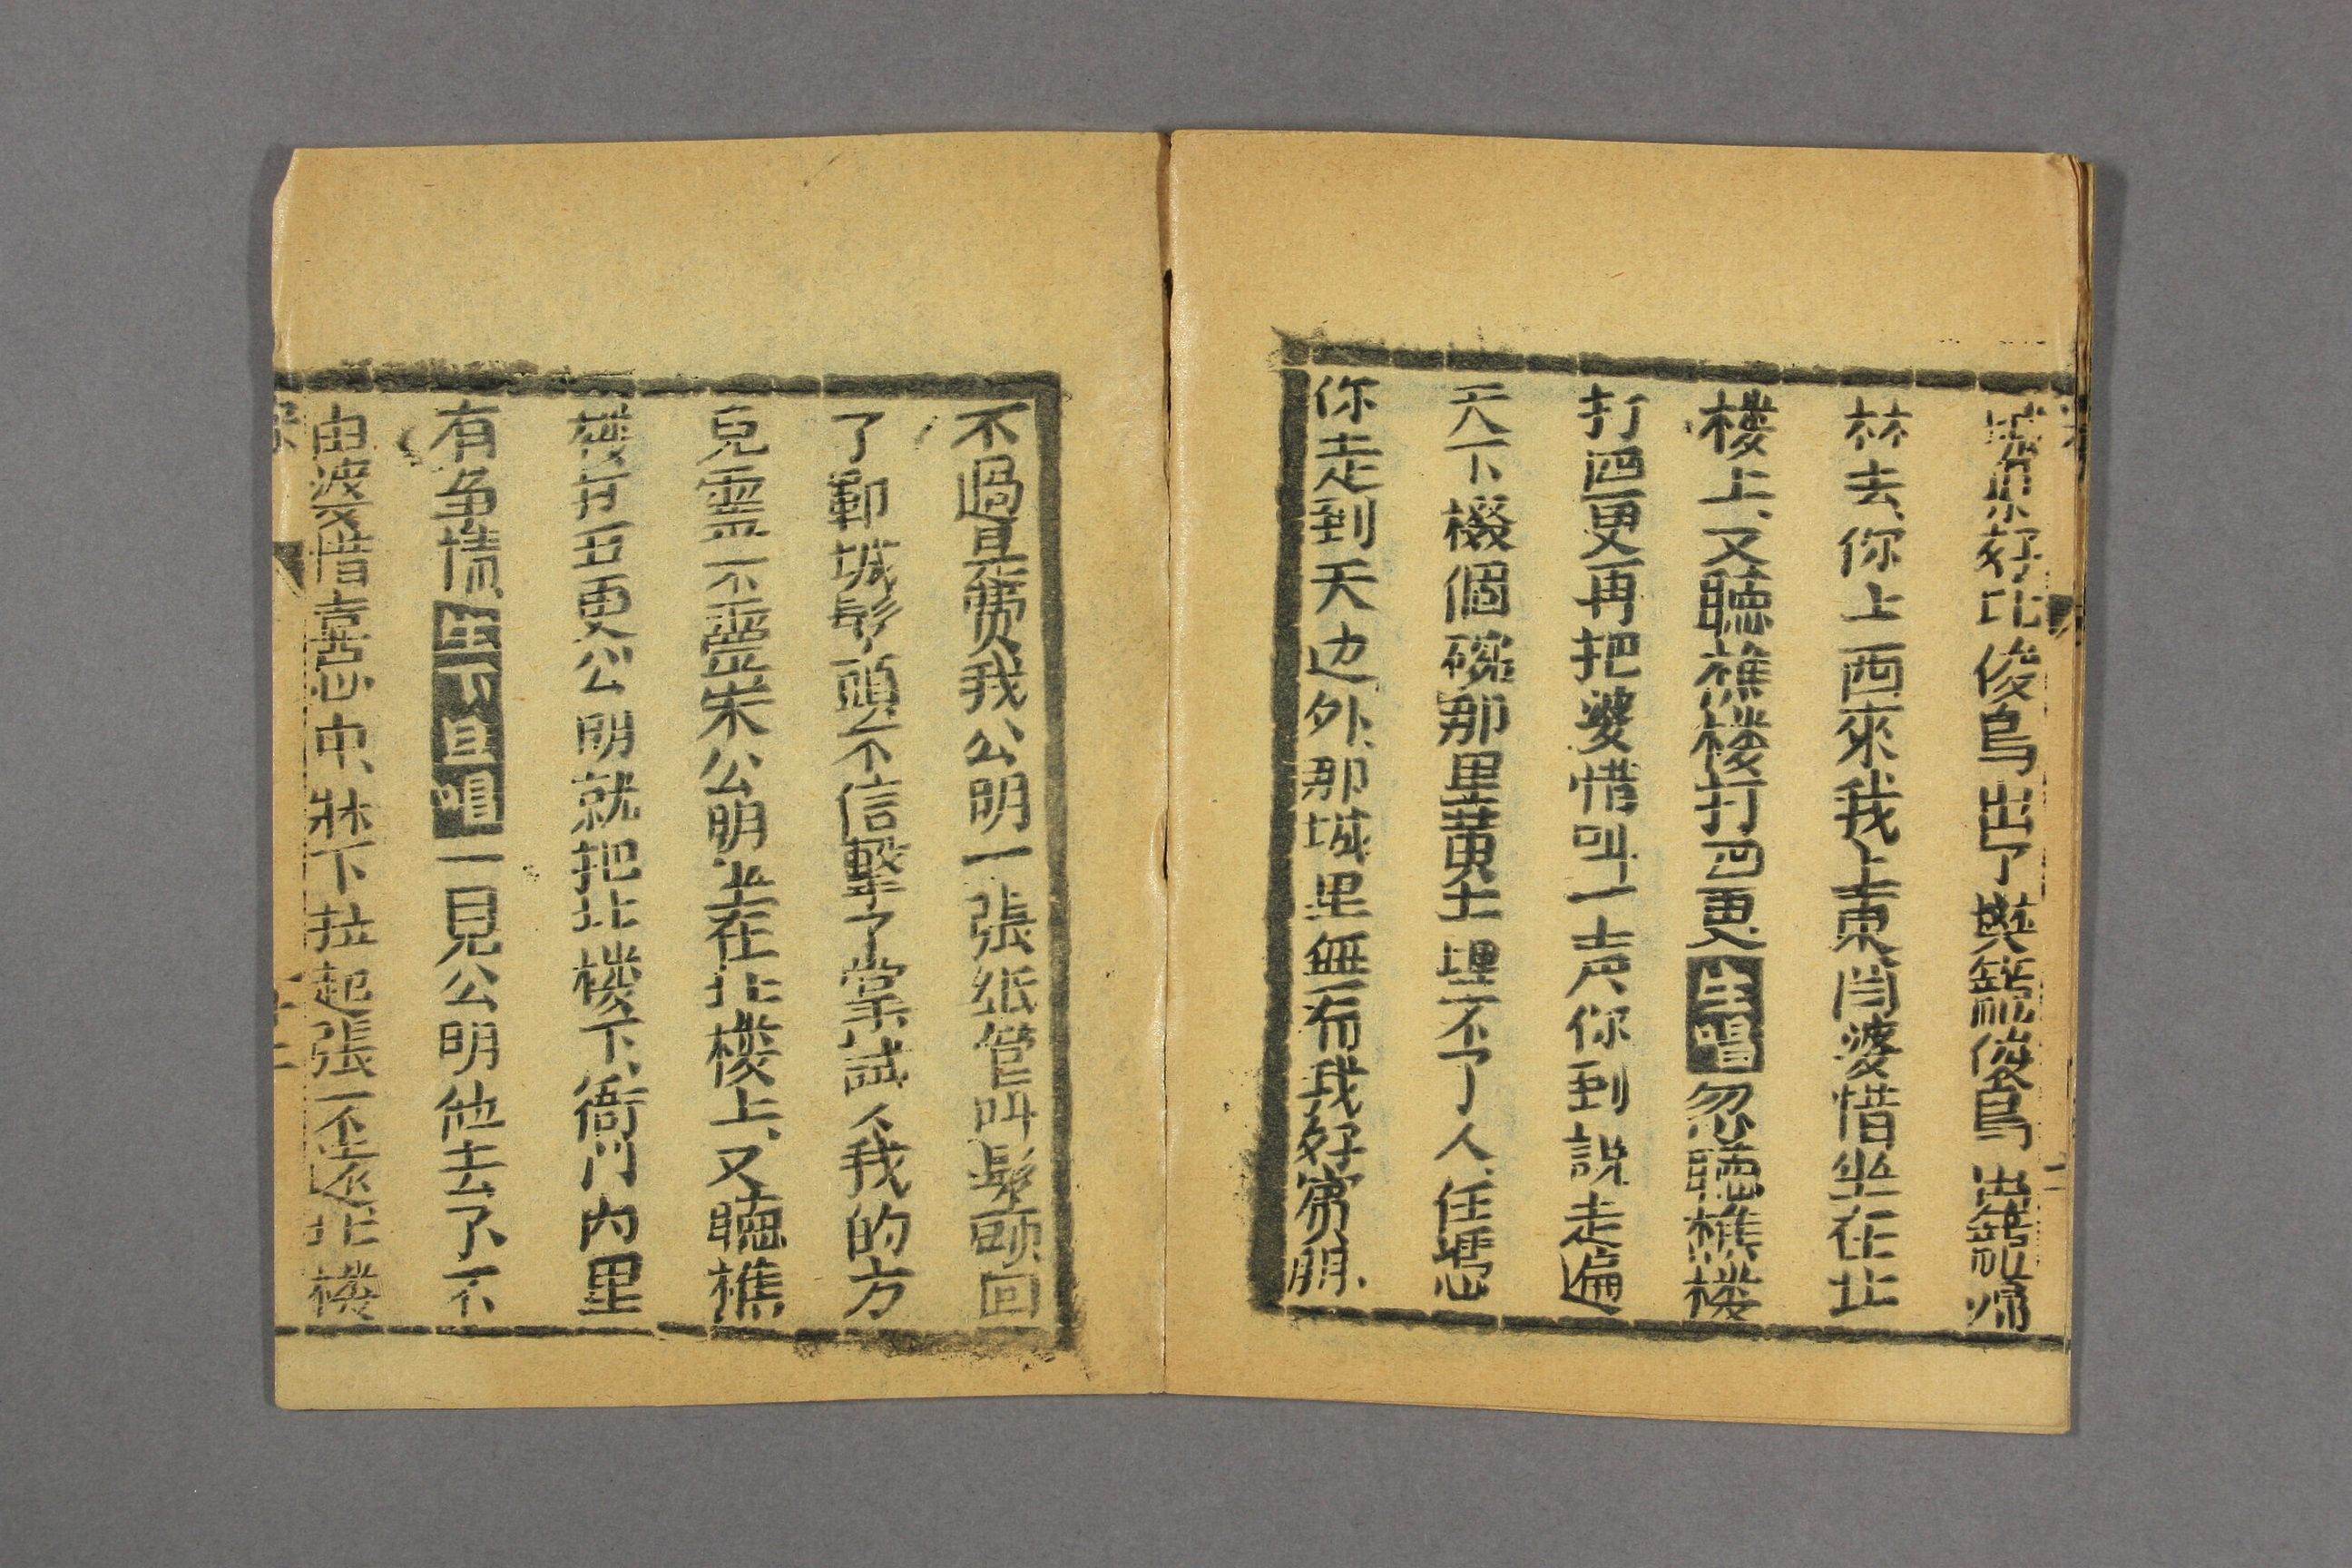 好比俊鳥出了與籠俊鳥出籠帰
林去、你上西來我上東閆婆惜坐在北
楼上、又聴樵楼打四更、生唱忽聴樵楼
打四更再把婆惜叫一声你到説走遍
天下㡬個碗那里黄土埋不了人、任憑
你走到天边外、那城里無有我好賓朋、
不過是費我公明一張纸管叫髮頭回
了鄆城髮頭不信擊了掌試〻我的方
見灵不霊宋公明坐在北楼上、又聴樵
楼打五更公明就把北楼下、衙门内里
有争情、旦唱一見公明他去了不
由婆惜喜心中、牀下拉起張 还北楼